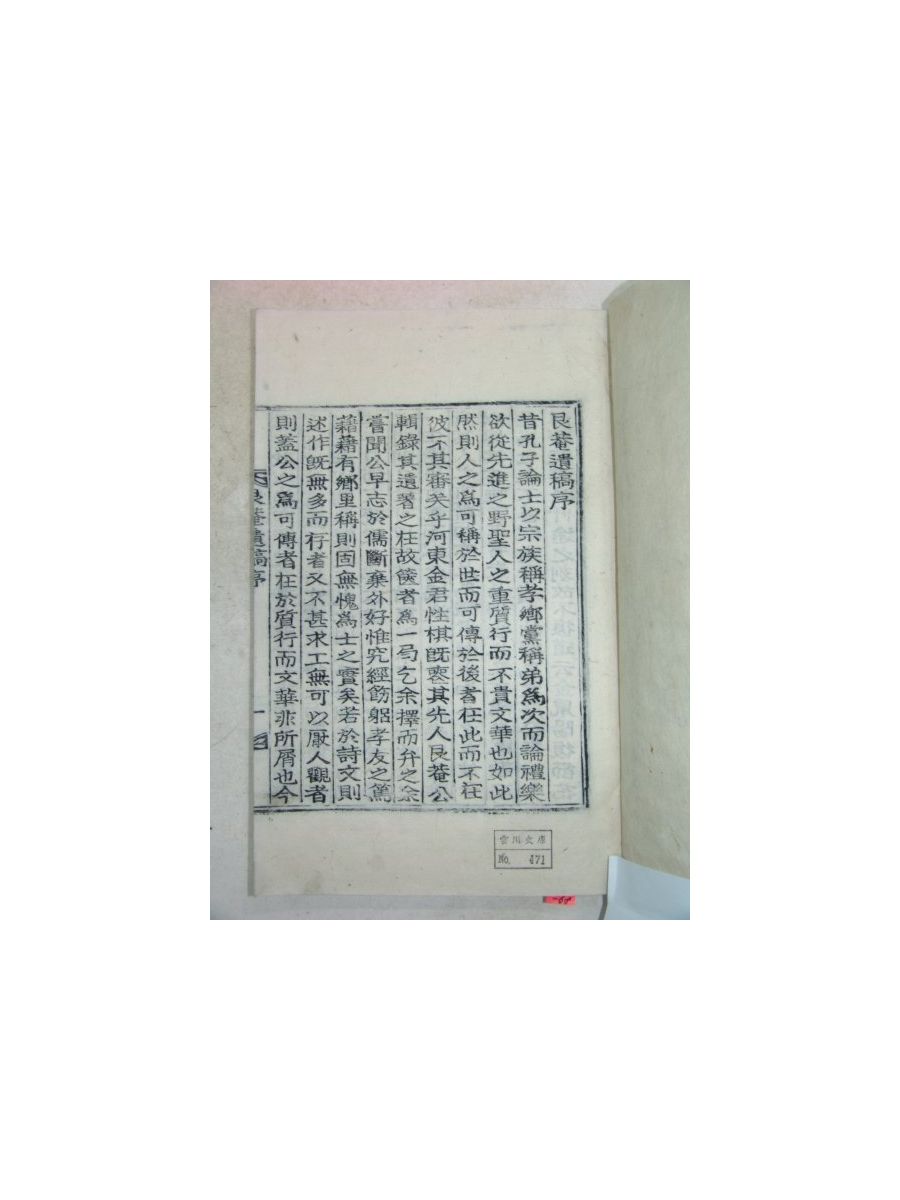 艮菴遺稿序
昔孔子論士以宗族稱孝鄉黨稱弟爲次而論禮樂
欲從先進之野聖人之重質行而不貴文華也如此
然則人之爲可稱於世而可傳於後者在此而不在
彼不其審矣乎河東金君性棋旣喪其先人艮菴公
輯錄其遺著之在故篋者爲一局乞余擇而弁之余
嘗聞公早志於儒斷棄外好惟究經飭躬孝友之篤
藉藉有鄉里稱則固無愧爲士之實矣若於詩文則
述作旣無多而存者又不甚求工無可以厭人觀者
則蓋公之爲可傳者在於質行而文華非所屑也今
艮菴遺稿序
一
文庫
No. 471